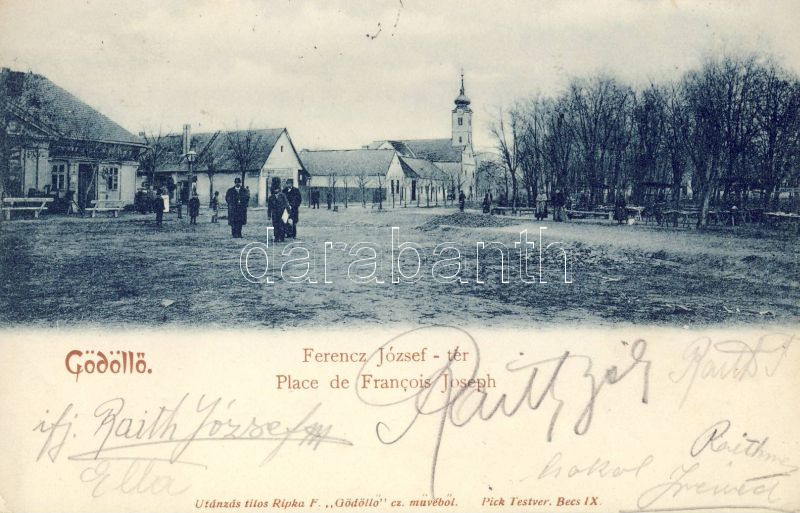 darabanth
Gödöllő.
Ferencz József - tér
Place de François Joseph
ifj. Raith József
Ella
Utánzás tilos Ripka F. „Gödöllő" cz. művéből. Pick Testver. Becs IX.